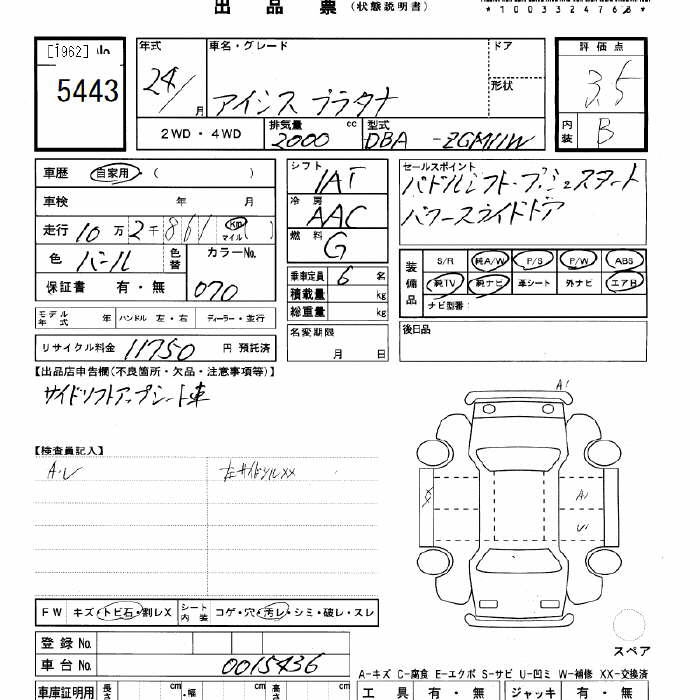 出 品 票 (状態説明書)
*10033247
[1962]
5443
年式 24/ 月
車名・グレード アイシス プラタナ
ドア
形状
評価点 3.5
内装 B
2WD・4WD
排気量 2000 cc
型式 DBA -ZGM11W
車歴 自家用 ( )
車検 年 月
走行 10万2千861 Km マイル ( )
色 パール 色替 カラーNo. 070
保証書 有・無
シフト IAT
冷房 AAC
燃料 G
乗車定員 6 名
積載量 kg
総重量 kg
セールスポイント
パドルシフト・プッシュスタート
パワースライドドア
装備品 S/R 純A/W P/S P/W ABS
純TV 純ナビ 革シート 外ナビ エアB
ナビ型番:
モデル年式 年 ハンドル 左・右 ディーラー・並行
名変期限 月 日
後日品
リサイクル料金 11750 円 預託済
【出品店申告欄(不良箇所・欠品・注意事項等)】
サイドリフトアップシート車
A1
【検査員記入】
A・U
左サイドシルXX
A1
U1
FW キズ・トビ石・割レX シート内装 コゲ・穴・汚レ・シミ・破レ・スレ
登録 No.
スペア
車台 No. 0015436
A-キズ C-腐食 E-エクボ S-サビ U-凹ミ W-補修 XX-交換済
車庫証明用 長さ cm 幅 cm 高さ cm
工具 有・無 ジャッキ 有・無